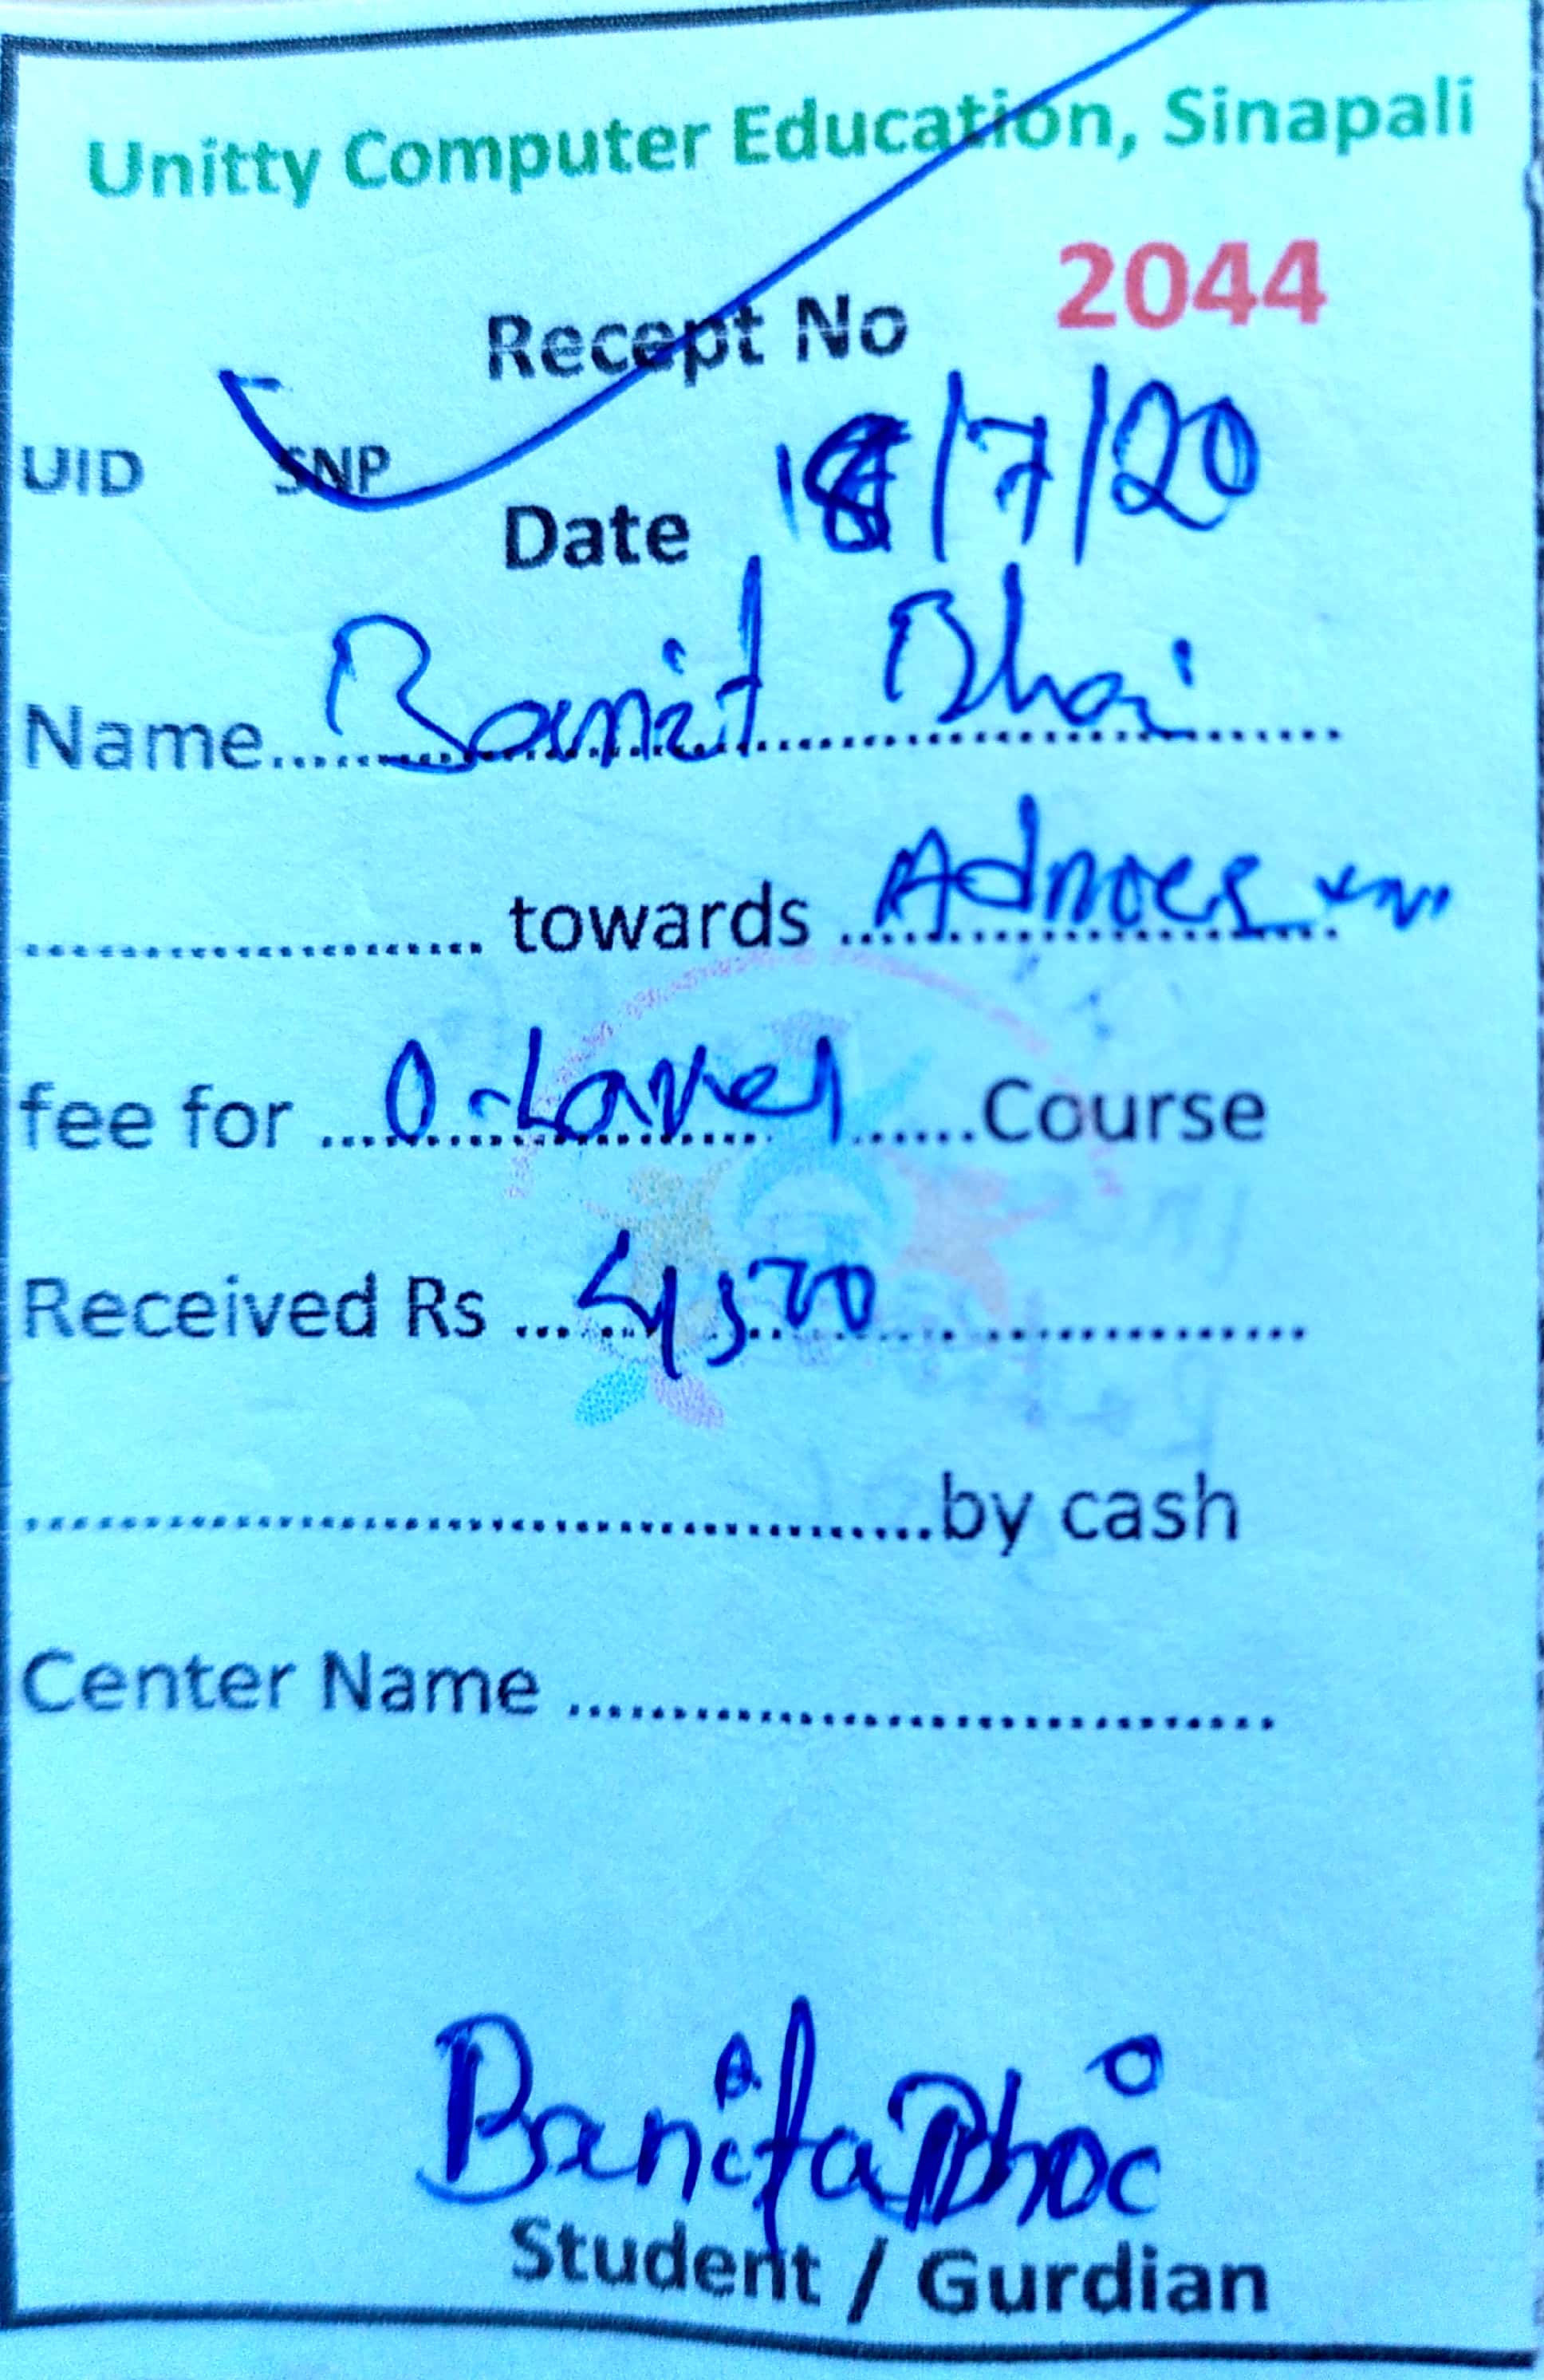 Unitty Computer Education, Sinapali
Recept No 2044
UID SNP
Date 18/7/20
Name Banit Bhoi
towards
fee for O-Lavel Course
Received Rs 4500
by cash
Center Name
Banita Bhoi
Student / Gurdian